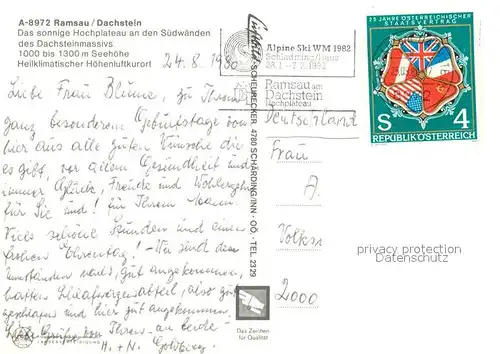 A-8972 Ramsau/Dachstein
Das sonnige Hochplateau an den Südwänden
des Dachsteinmassivs
1000 bis 1300 m Seehöhe
Heilklimatischer Höhenluftkurort
24.8.1980
Liebe Frau Blume, zu Ihrem
ganz besonderem Geburtstage von
hier aus alle guten Wünsche die
es gibt, vor allem Gesundheit und
immer Glück, Freude und Wohlergehn
für Sie und Ihrem Mann.
Viele schöne Stunden und einen
frohen Ehrentag! Wir sind den
Umständen nach, gut angekommen,
hatten Schlafwagenabteil, also gut
geschlafen und hier gut angekommen.
Liebe Grüße von Ihren an beide
H. + N.
SCHEURECKER, 4780 SCHÄRDING/INN - OÖ. - TEL. 2329
Alpine Ski WM 1982
Schladming/Haus
28.1.-7.2.1982
Ramsau am
Dachstein
Hochplateau
25 JAHRE ÖSTERREICHISCHER
STAATSVERTRAG
S 4
REPUBLIK ÖSTERREICH
Deutschland
Frau
A.
Volks
2000
privacy protection
Datenschutz
Das Zeichen
für Qualität